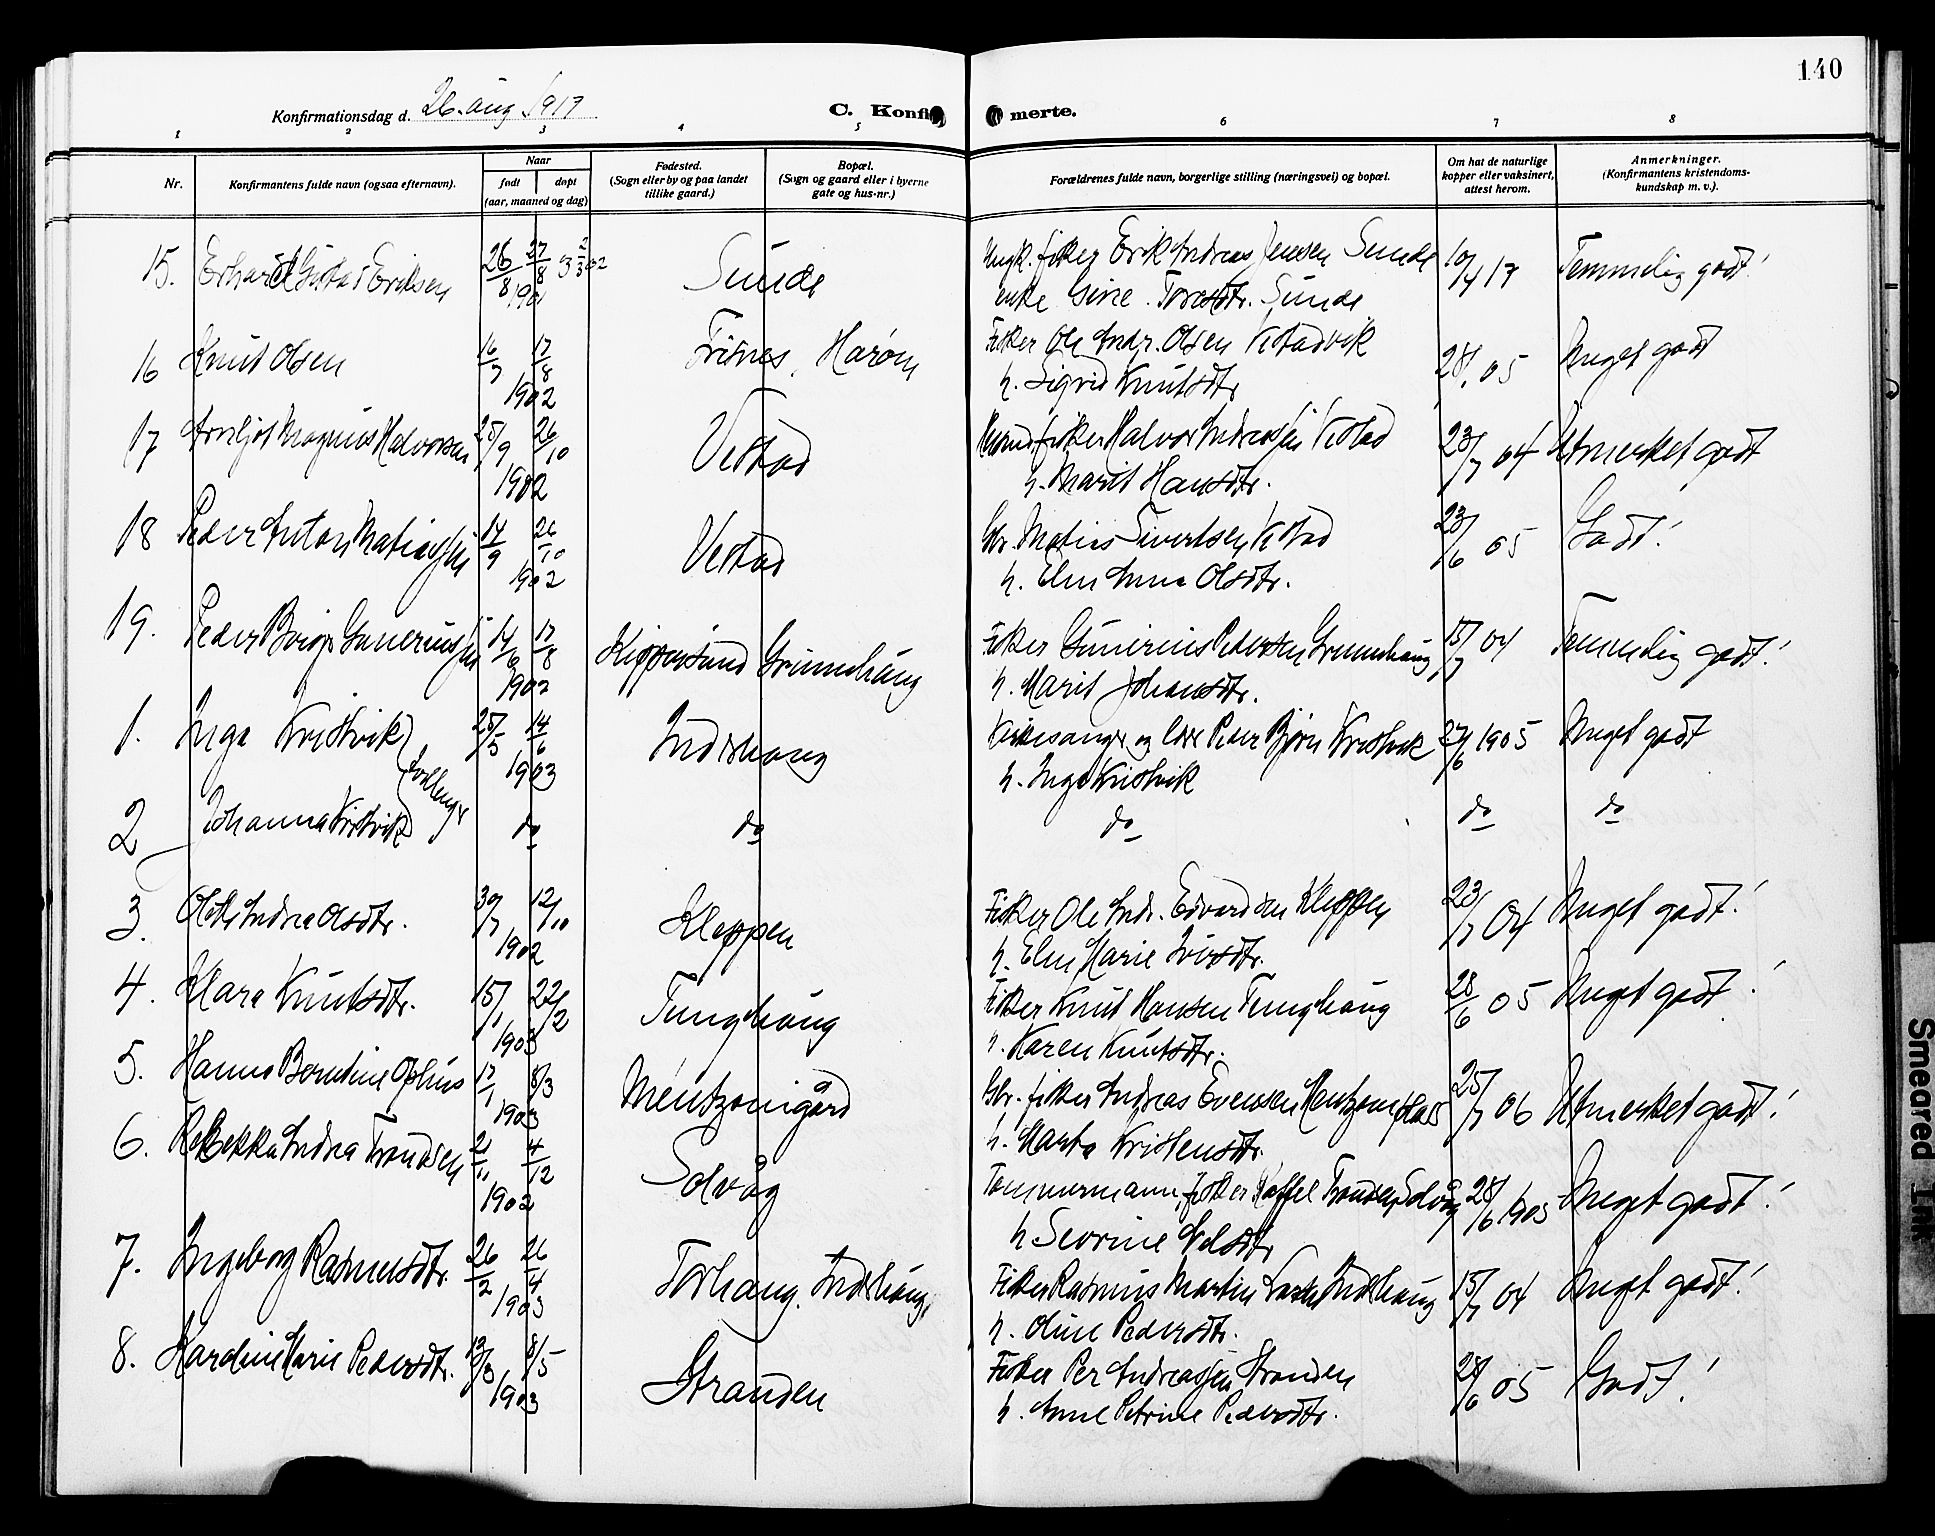 140
Konfirmationsdag d. 26. aug. 1917
C. Konfi merte.
1 2 3 4 5 6 7 8
Nr.
Konfirmantens fulde navn (ogsaa efternavn).
Naar
født døpt
(aar, maaned og dag)
Fødested.
(Sogn eller by og paa landet
tillike gaard.)
Bopæl.
(Sogn og gaard eller i byerne
gate og hus-nr.)
Forældrenes fulde navn, borgerlige stilling (næringsvei) og bopæl.
Om hat de naturlige
kopper eller vaksinert,
attest herom.
Anmerkninger.
(Konfirmantens kristendoms-
kundskap m. v.).
15. Eriksen 26/8 Sunde Ungk. fisker Erik Andreas Jensen Sunde 10/4 17 Temmelig godt!
enke Sunde
16 Knut Olsen 16/7 17/8 1902 Harøen Fisker Ole Andr. Olsen Vestadvik 05 Meget godt
h. Sigrid Knutsdtr
17 Arnljot Magnus Halvorsen 25/9 26/10 1902 Vestad fisker Halvor Andreassen Vestad 23/7 04 Utmerket godt
h. Marit Hansdtr.
18 Peder Anton Matiassen 14/9 26/10 1902 Vestad Gbr. Matias Sivertsen Vestad 23/6 05 Godt!
h. Elen Anna Olsdtr.
19. Peder Gunerius 14/6 17/8 1902 Fisker Gunerius Pedersen 15/7 04 Temmelig godt!
h. Marit Johansdtr.
1. Inga Kristvik 25/3 14/6 1903 Indrehaug Kirkesanger og lærer Peder Bjørn Kristvik 27/6 1905 Meget godt
h. Inga Kristvik
tvillinger
2 Johanna Kristvik do do do do do
3. Andrea Olsdtr. 30/7 12/10 1902 Kleppen Fisker Ole Andr. Edvardsen Kleppen 23/7 04 Meget godt!
h. Elen Marie Iversdtr.
4. Klara Knutsdtr. 15/1 22/2 1903 Tunghaug Fisker Knut Hansen Tunghaug 28/6 05 Meget godt!
h. Karen Knutsdtr.
5. Hanna Berntine Ophus 17/1 8/3 1903 Mentzonigård Gbr. fisker Andreas Evensen 25/7 06 Utmerket godt!
h. Marta Kristensdtr.
6. Rebekka Andrea Trondsen 21/11 4/12 1902 Solvåg Tømmermann, fisker Trondsen Solvåg 28/6 1905 Meget godt!
h Severine
7. Ingeborg Rasmusdtr. 26/2 26/4 1903 Torhaug. Indrehaug Fisker Rasmus Martin Indrehaug 15/7 04 Meget godt!
h. Oline Pedersdtr.
8. Marie Pedersdtr. 13/3 8/5 1903 Stranden Fisker Per Andreassen Stranden 28/6 05 Godt!
h. Anne Petrine Pedersdtr.
Smeared Ink